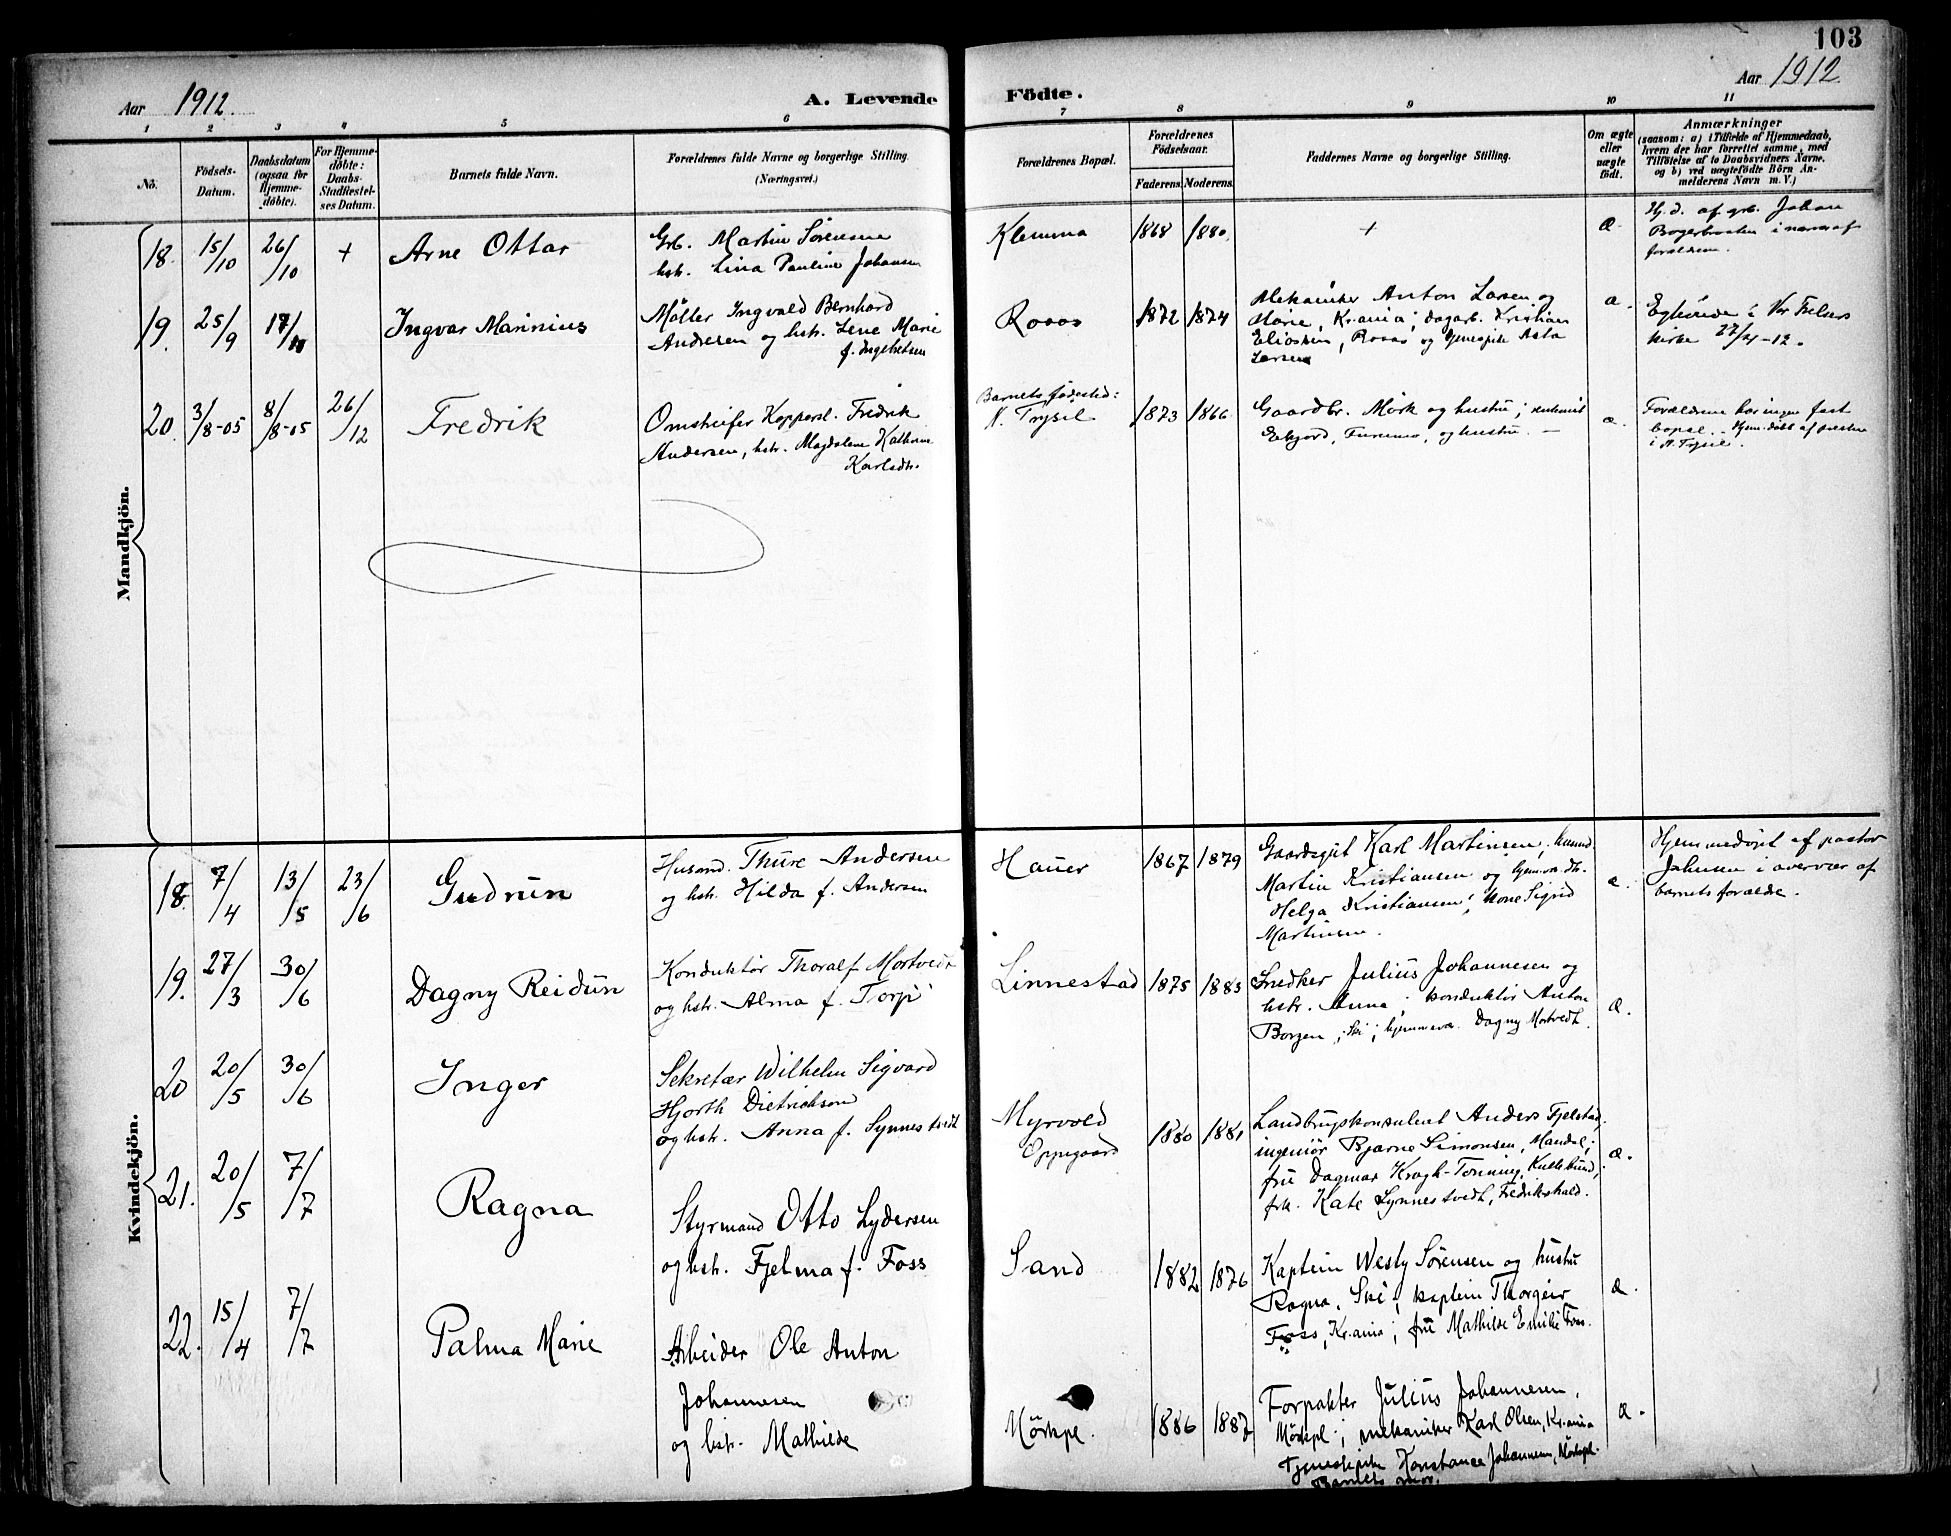 103
Aar 1912.
A. Levende
Födte.
Aar 1912
1 2 3 4 5 6 7 8 9 10 11
No.
Födsels-
Datum.
Daabsdatum
(ogsaa for
Hjemme-
døbte).
For Hjemme-
døbte:
Daabs-
Stadfæstel-
ses Datum.
Barnets fulde Navn.
Forældrenes fulde Navne og borgerlige Stilling.
(Næringsvei.)
Forældrenes Bopæl.
Forældrenes
Födselsaar.
Faderens. Moderens.
Faddernes Navne og borgerlige Stilling.
Om ægte
eller
uægte
födt.
Anmærkninger
(saasom: a) i Tilfælde af Hjemmedaab,
hvem der har forrettet samme, med
Tilföielse af to Daabsvidners Navne,
og b) ved uægtefödte Börn An-
melderens Navn m. V.)
Mandkjön.
18. 15/10 26/10 + Arne Ottar
Grb. Martin Sörensen
hstr. Lina Pauline Johansen
Klemma 1868 1880. + æ.
Hj.d. af grb. Johan
i nærvær af
forældrene.
19. 25/9 17/11 Ingvar Marinius
Möller Ingvald Bernhard
Andresen og hstr. Lene Marie
f. Ingebretsen
Rosas 1872 1874
Mekaniker Anton Larsen og
Marie, Kr.ania; dagarb. Kristian
Eliassen, Rosas og tjenespike Asta
Larsen
æ.
i Vor Frelsers
kirke 27/4-12.
20. 3/8-05 8/8-05 26/12 Fredrik
Omstreifer Koppersl. Fredrik
Andersen, hstr. Magdalene Kathrine
Karlsdtr.
Barnets fødested:
N. Trysil 1873 1866
Gaardbr. Mörk og hustru;
Furumo, og hustru. —
æ.
Forældrene har ingen fast
bopæl. — Hjemmedøbt af presten
i N. Trysil.
Kvindekjön.
18. 7/4 13/5 23/6 Gudrun
Husmd. Thure Andersen
og hstr. Hilda f. Andersen
Hauer 1867 1879
Gaardsgut Karl Martinsen; husmd.
Martin Kristiansen og hjemmev. dtr.
Helga Kristiansen; kone Sigrid
Martinsen.
æ.
Hjemmedöpt af pastor
Johnsen i overvær af
barnets forældre.
19. 27/3 30/6 Dagny Reidun
Konduktör Thoralf Mortvedt
og hstr. Alma f. Torp
Linnestad 1875 1883
Snedker Julius Johannesen og
hstr. Anna; konduktör Anton
Borgen, Ski; hjemmevær. Dagny Mortvedt.
æ.
20 20/5 30/6 Inger
Sekretær Wilhelm Sigvard
Hjorth Dietrichson
og hstr. Anna f. Synnestvedt
Myrvold
Oppegaard 1880 1881
Landbrugskonsulent Anders Fjelstad,
ingeniör Bjarne Simonsen, Mandal;
fru Dagmar Kragh-Tönning, Kullebund;
frk. Kate Synnestvedt, Fredrikshald.
æ.
21. 20/5 7/7 Ragna
Styrmand Otto Lydersen
og hstr. Fjelma f. Foss
Sand 1882 1876
Kaptein Westy Sörensen og hustru
Ragna, Ski; kaptein Thorgeir
Foss, Kr.ania; fru Mathilde Emilie Foss.
æ.
22. 15/4 7/7 Palma Marie
Arbeider Ole Anton
Johannesen
og hstr. Mathilde
Mörkpl. 1886 1887
Forpakter Julius Johannesen,
Mörkpl; mekaniker Karl Olsen, Kr.ania
Tjenestpike Konstance Johannesen, Mörkpl.
Barnets mor.
æ.